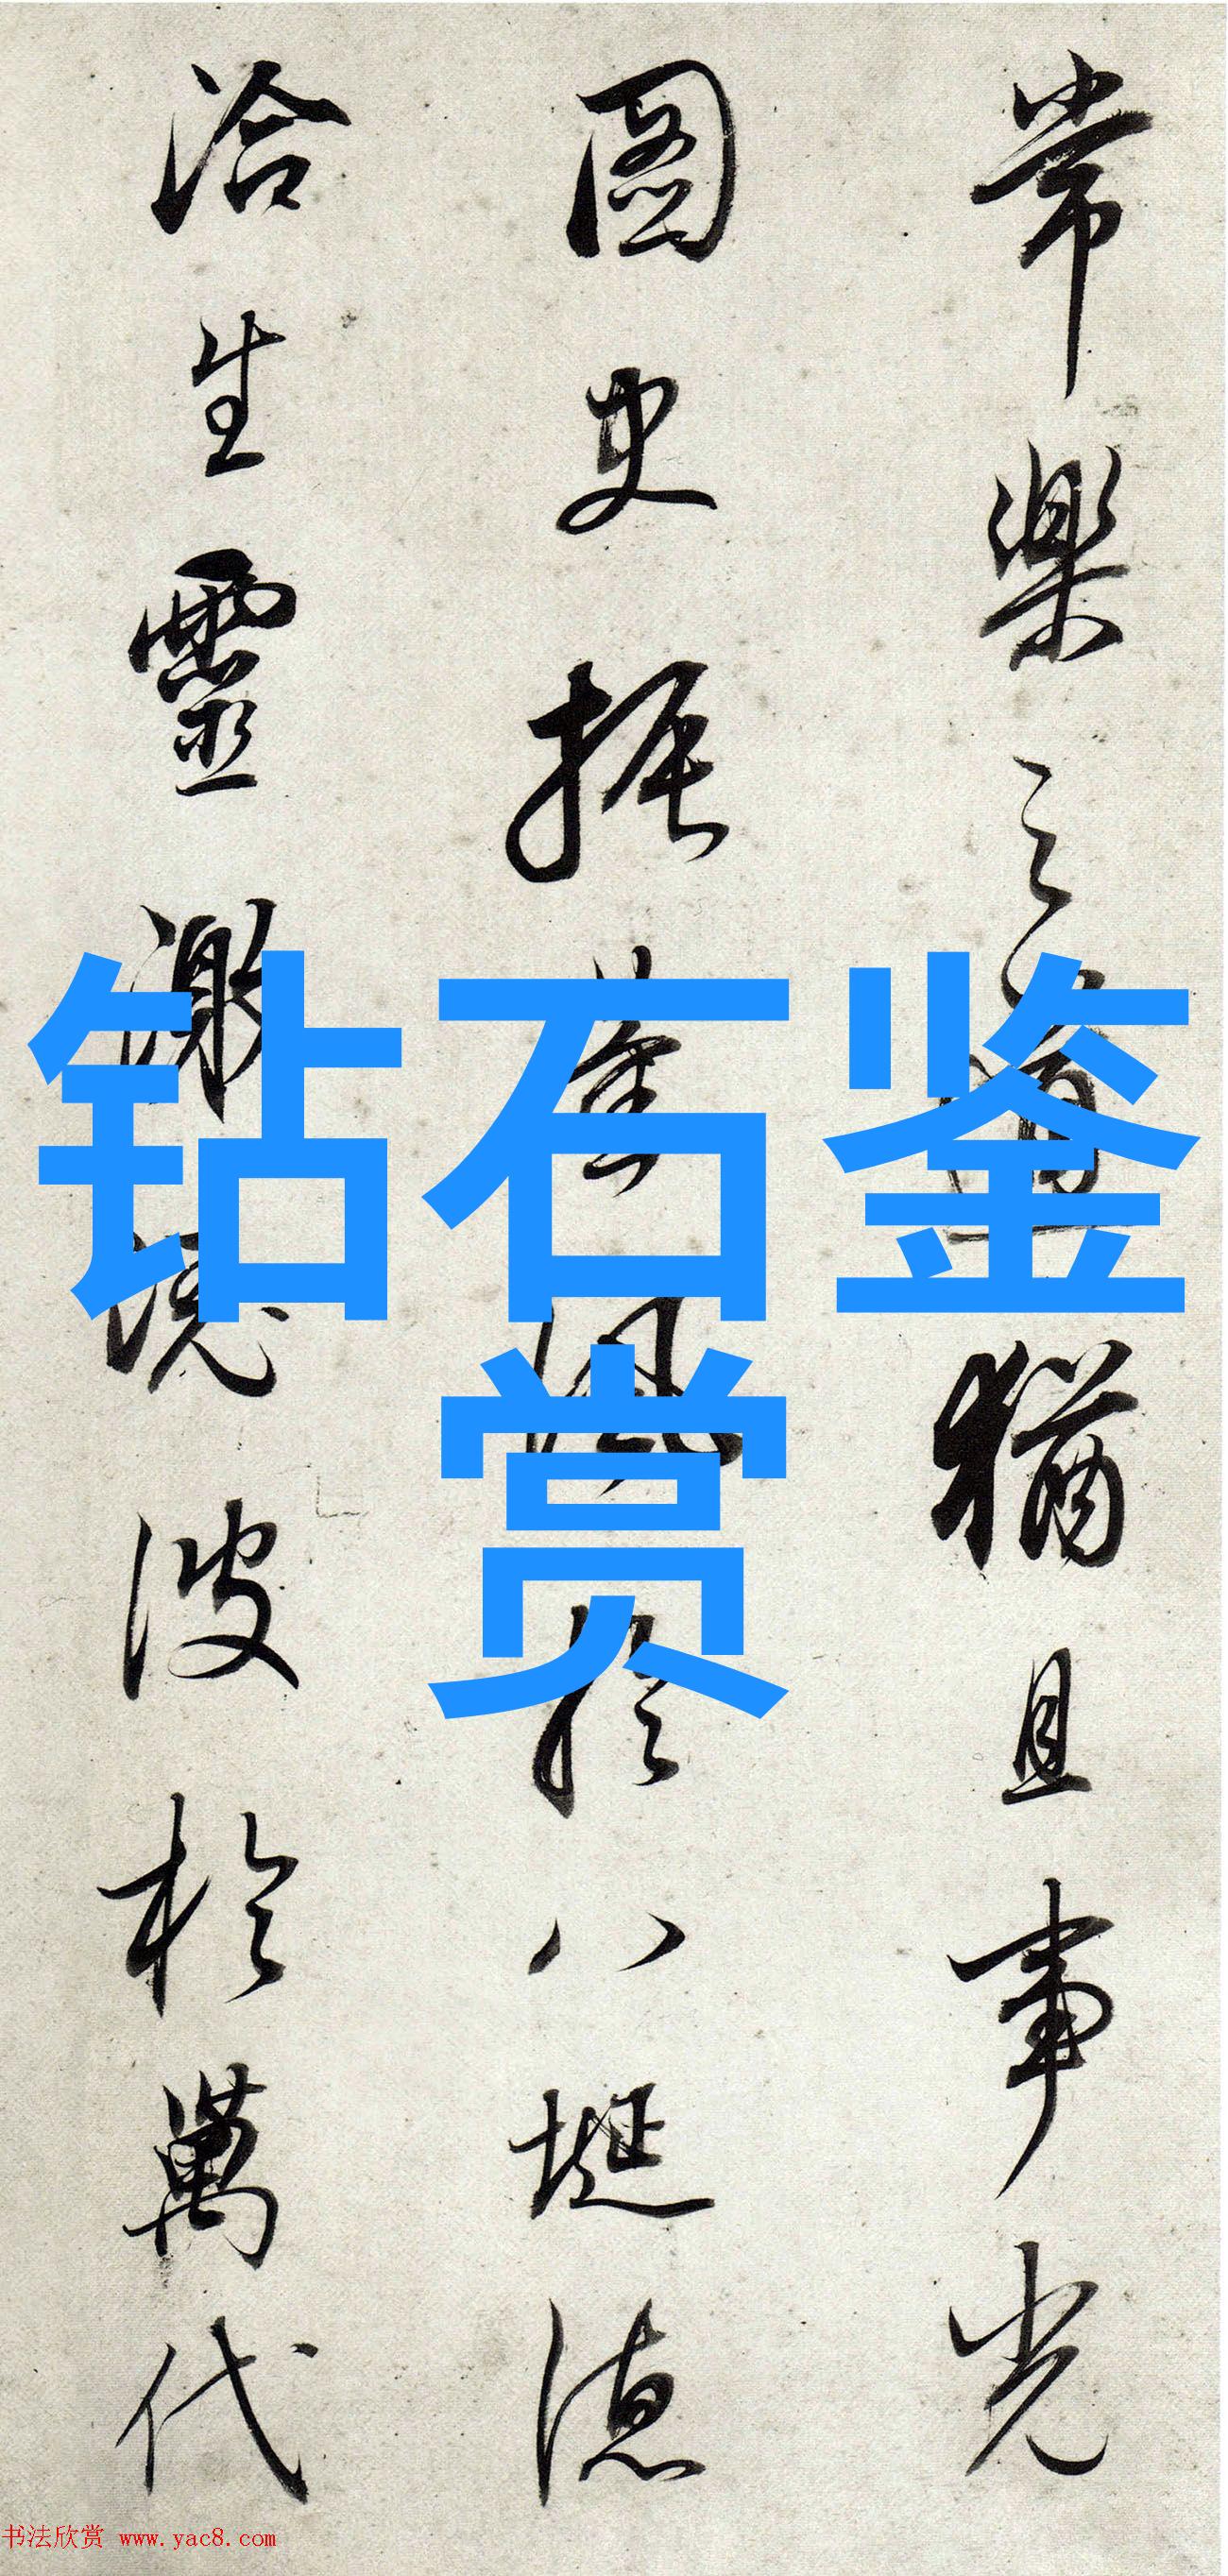 常樂之道猶且事光
圖史振風於八埏德
洽生靈激波於萬代
钻石鉴
赏
书法欣赏 www.yac8.com